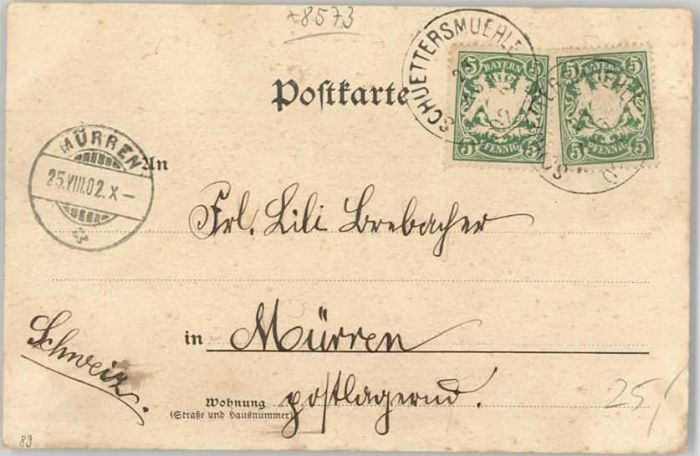 +8573
SCHUETTERSMUEHLE
5 BAYERN 5
5 PFENNIG 5
5 BAYERN 5
5 PFENNIG 5
Postkarte
MÜRREN
25.VIII.02.X–
An
Frl. Lili Brebacher
Schweiz.
in Mürren
Wohnung
(Straße und Hausnummer)
postlagernd.
25/
89